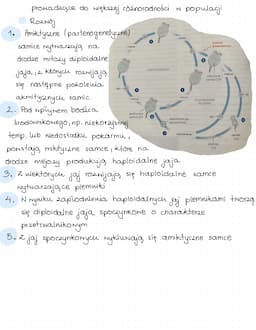 prowadzące do większej różnorodności w populacji
Rozwój
1. Amiktyczne (partenogenetyczne)
samice wytwarzają na
drodze mitozy diploidalne
jaja, z których rozwijają
się następne pokolenia
amiktycznych samic.
2. Pod wpływem bodźca
środowiskowego, np. niekorzystnej
temp. lub niedostatku pokarmu,
powstają miktyczne samice, które na
drodze mejozy produkują haploidalne jaja
3. Z niektórych jaj rozwijają się haploidalne samce
wytwarzające plemniki
4. W wyniku zapłodnienia haploidalnych jaj plemnikami tworzą
się diploidalne jaja spoczynkowe o charakterze
przetrwalnikowym
5. Z jaj spoczynkowych wykluwają się amiktyczne samice